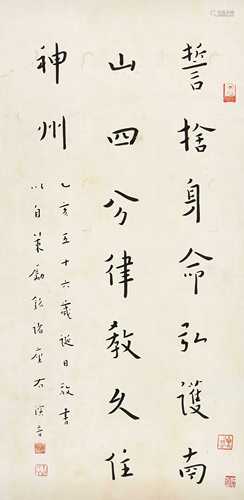 誓捨身命弘護南
山四分律教久住
神州
乙亥五十六歲誕日敬書
以自策勵銘諸座右演音